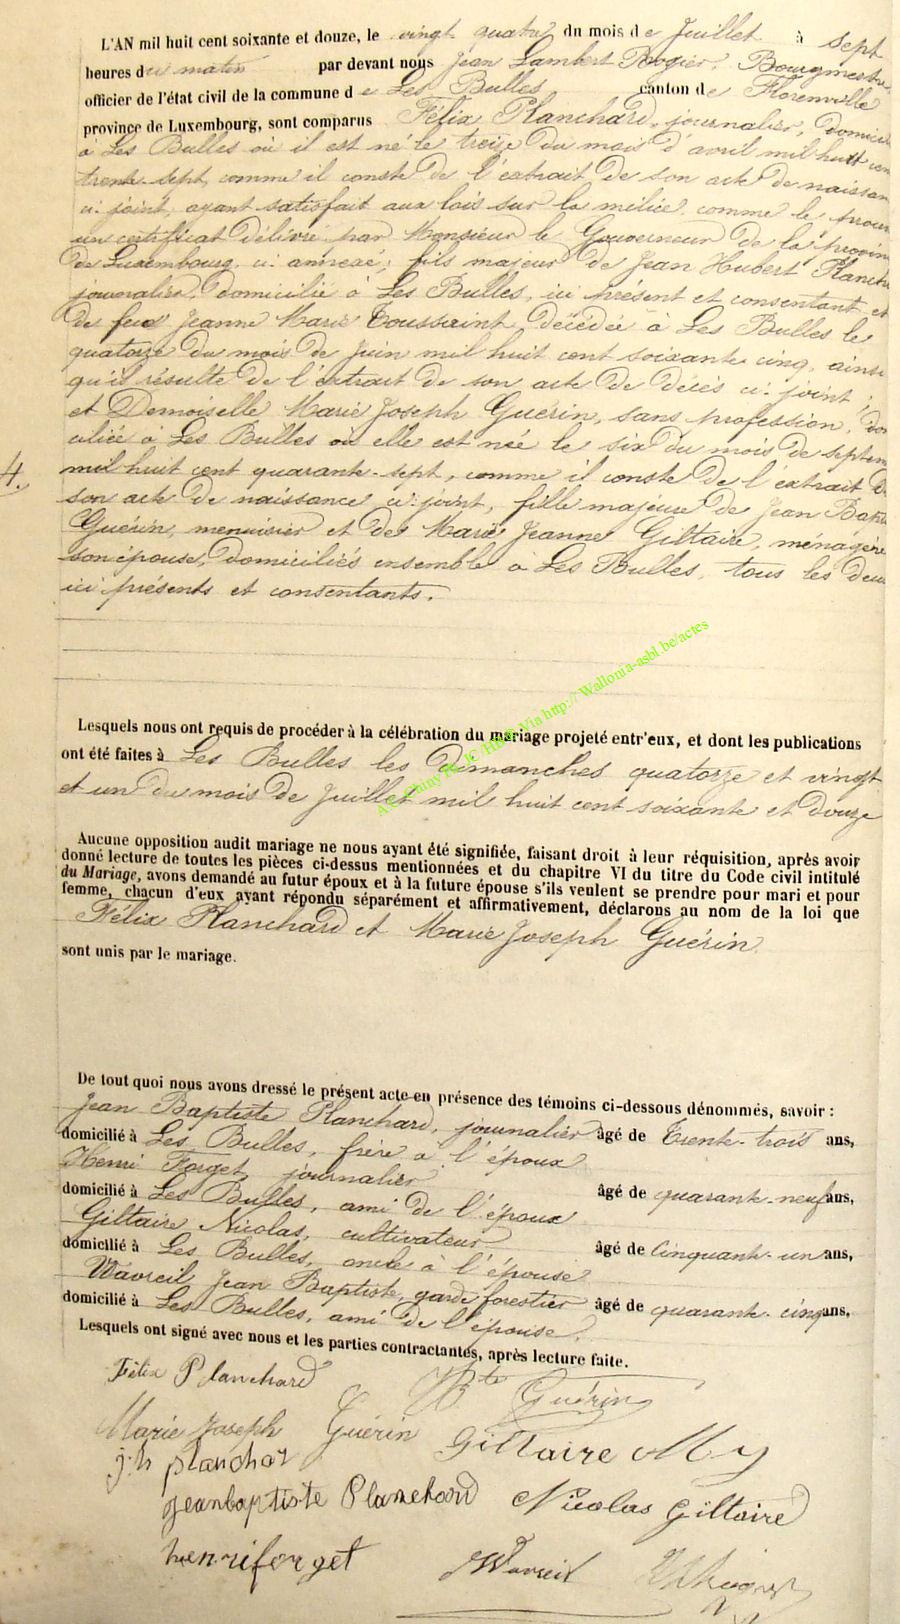 L'AN mil huit cent soixante et douze, le vingt quatre du mois de Juillet à sept
heures du matin par devant nous Jean Lambert Rogier, Bourgmestre
officier de l'état civil de la commune de Les Bulles canton de Florenville
province de Luxembourg, sont comparus Félix Planchard, journalier, domici
à Les Bulles où il est né le treize du mois d'avril mil huit cen
trente-sept, comme il conste de l'extrait de son acte de naissan
ci-joint, ayant satisfait aux lois sur la milice comme le prou
un certificat délivré par Monsieur le Gouverneur de la provin
de Luxembourg, ci annexé; fils majeur de Jean Hubert Planch
journalier, domicilié à Les Bulles, ici présent et consentant et
de feue Jeanne Marie Toussaint décédée à Les Bulles le
quatorze du mois de Juin mil huit cent soixante cinq, ainsi
qu'il résulte de l'extrait de son acte de décès ci-joint;
et Demoiselle Marie Joseph Guérin, sans profession, dom
ciliée à Les Bulles où elle est née le six du mois de septem
4.
mil huit cent quarante-sept, comme il conste de l'extrait de
son acte de naissance ci-joint, fille majeure de Jean Bapti
Guérin, menuisier et de Marie Jeanne Giltaire, ménagère
son épouse, domiciliés ensemble à Les Bulles, tous les deux
ici présents et consentants.
Lesquels nous ont requis de procéder à la célébration du mariage projeté entr'eux, et dont les publications
ont été faites à Les Bulles les dimanches quatorze et vingt
et un du mois de Juillet mil huit cent soixante et douze
Via http://Wallonia-asbl.be/actes
Aucune opposition audit mariage ne nous ayant été signifiée, faisant droit à leur réquisition, après avoir
donné lecture de toutes les pièces ci-dessus mentionnées et du chapitre VI du titre du Code civil intitulé
du Mariage, avons demandé au futur époux et à la future épouse s'ils veulent se prendre pour mari et pour
femme, chacun d'eux ayant répondu séparément et affirmativement, déclarons au nom de la loi que
Félix Planchard et Marie Joseph Guérin
sont unis par le mariage.
De tout quoi nous avons dressé le présent acte en présence des témoins ci-dessous dénommés, savoir :
Jean Baptiste Planchard, journalier âgé de Trente-trois ans,
domicilié à Les Bulles, frère à l'époux
Henri Forget, journalier âgé de quarante-neuf ans,
domicilié à Les Bulles, ami de l'époux
Giltaire Nicolas, cultivateur âgé de Cinquante-un ans,
domicilié à Les Bulles, oncle à l'épouse
Wavreil Jean Baptiste, garde forestier âgé de quarante-cinq ans,
domicilié à Les Bulles, ami de l'épouse.
Lesquels ont signé avec nous et les parties contractantes, après lecture faite.
Félix Planchard
Bte Guérin
Marie Joseph Guérin
Giltaire M J
j h planchar
jeanbaptiste Planchard
Nicolas Giltaire
henriforget
JWavreil